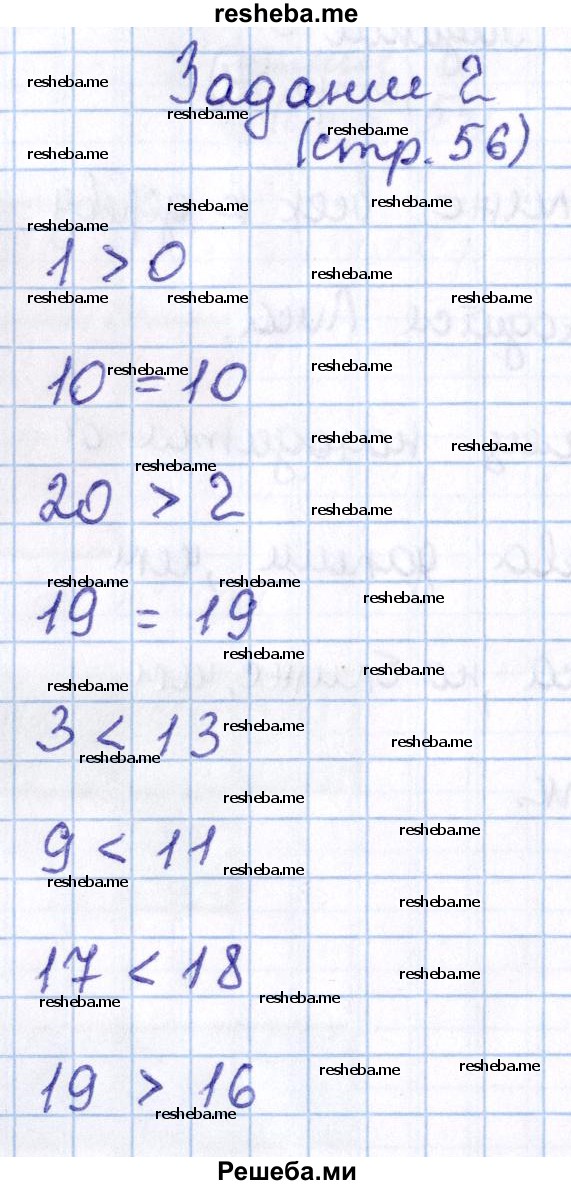 resheba.me
Задание 2
(стр. 56)
1 > 0
10 = 10
20 > 2
19 = 19
3 < 13
9 < 11
17 < 18
19 > 16
Решеба.ми